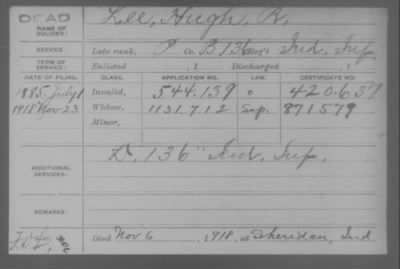 DEAD
NAME OF SOLDIER: Lee, Hugh R.
SERVICE: Late rank, P Co. B, 136 Reg't Ind. Inf.
TERM OF SERVICE: Enlisted , 1 Discharged , 1
DATE OF FILING. CLASS. APPLICATION NO. LAW. CERTIFICATE NO.
1885 July 1 Invalid, 544.139 420.637
1918 Nov. 23 Widow, 1131.712 Sep. 871579
Minor,
ADDITIONAL SERVICES: D, 136" Ind. Inf.
REMARKS:
Died Nov 6 , 1918, at Sheridan, Ind.